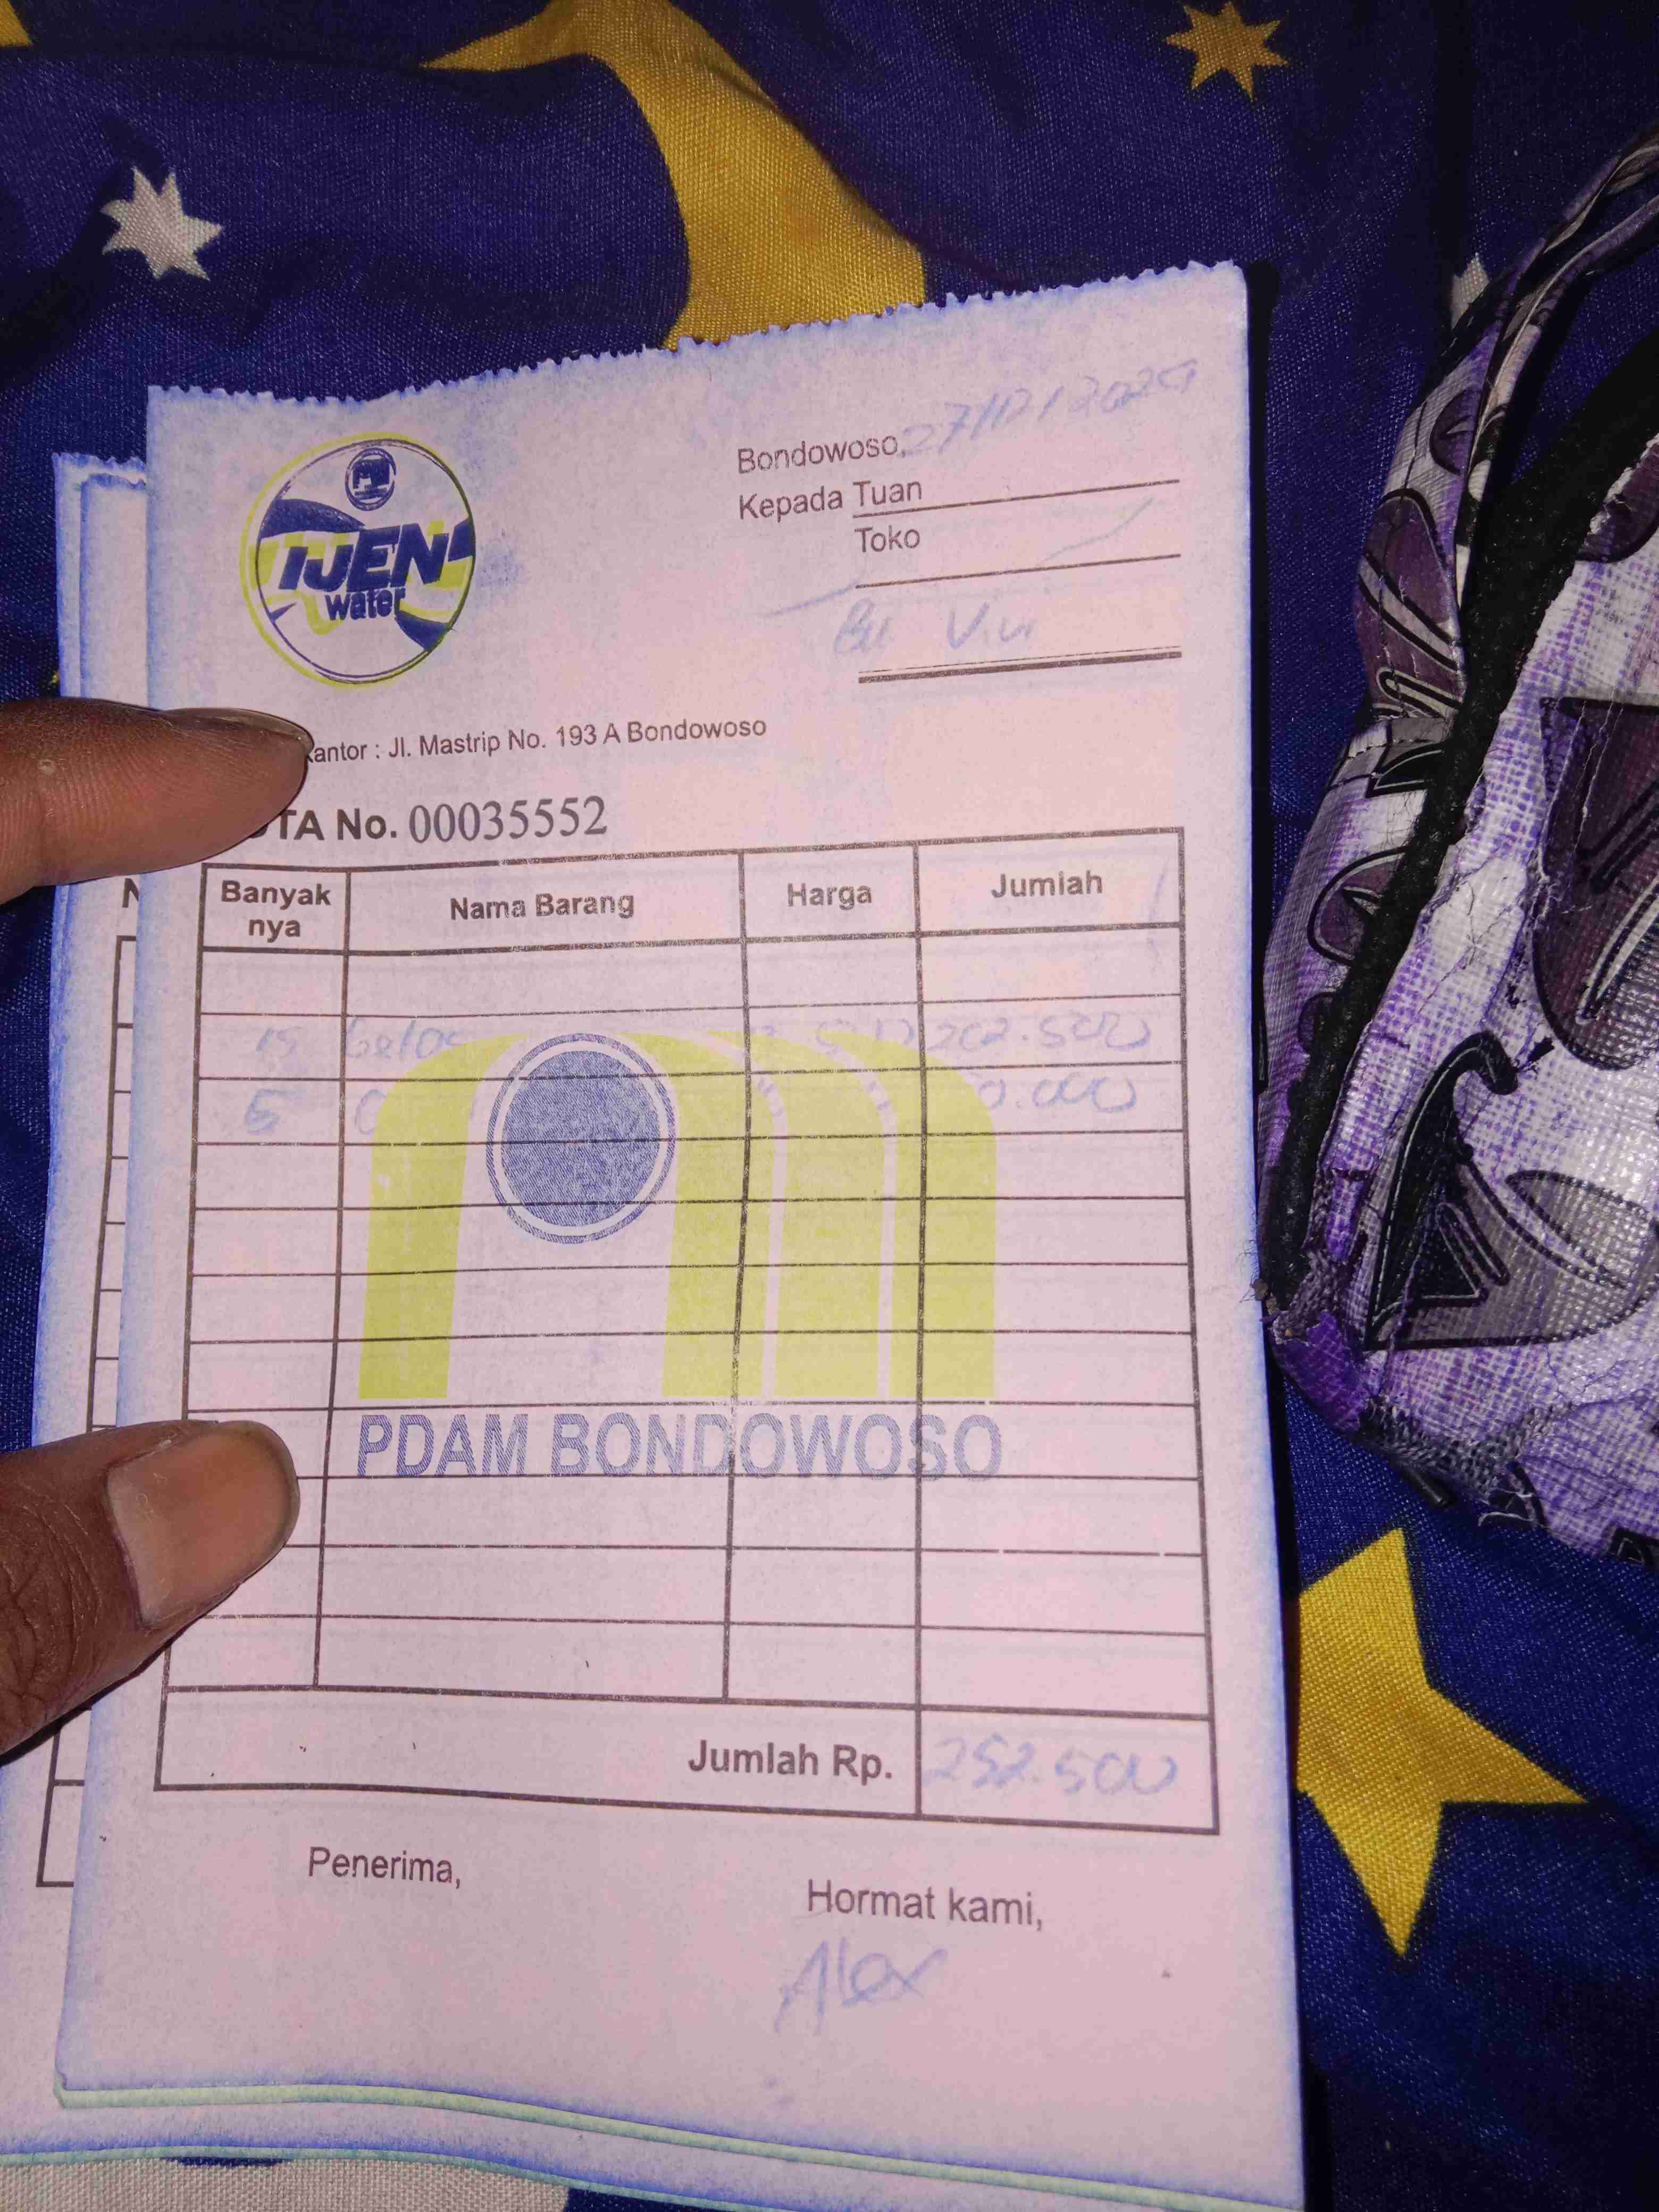 IJEN
water
Bondowoso, 27/12/2024
Kepada Tuan
Toko
Bu Vivi
antor : Jl. Mastrip No. 193 A Bondowoso
TA No. 00035552
Banyak nya Nama Barang Harga Jumlah
15 gelas 202.500
5 0.000
PDAM BONDOWOSO
Jumlah Rp. 252.500
Penerima,
Hormat kami,
Alex